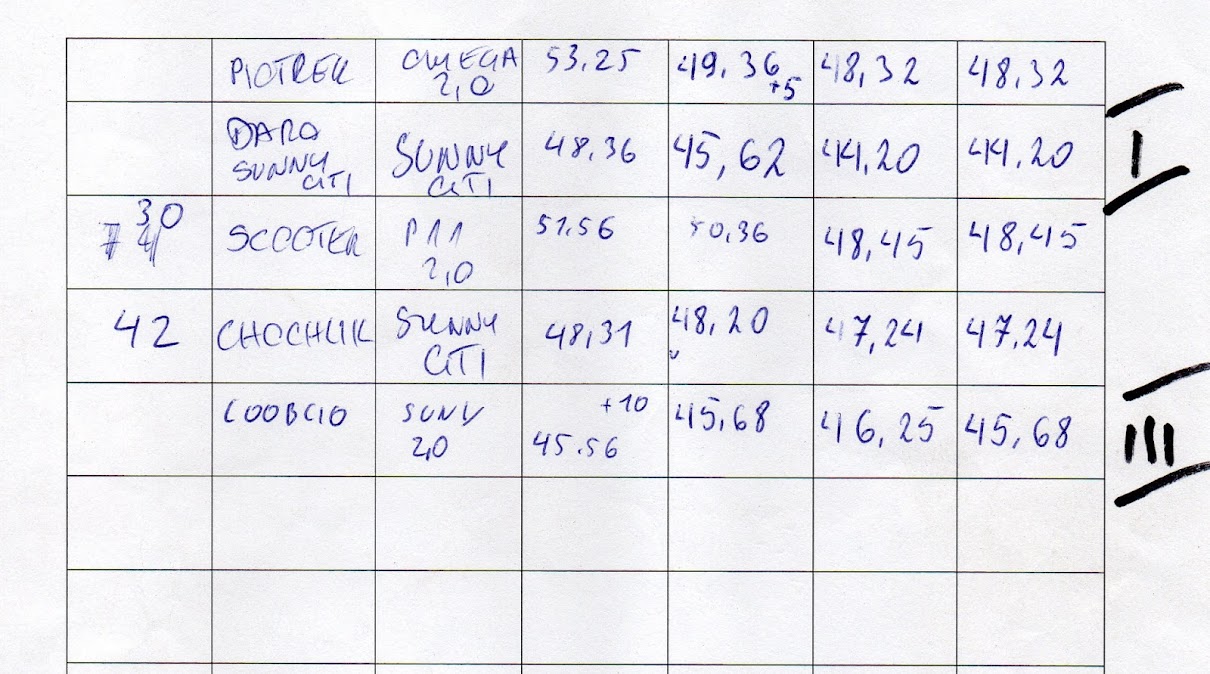 PIOTREK OMEGA 2,0 53,25 49,36 +5 48,32 48,32
DARO SUNNY GTI SUNNY GTI 48,36 45,62 44,20 44,20 I
30 SCOOTER P11 2,0 51,56 50,36 48,45 48,45
42 CHOCHLIK SUNNY GTI 48,31 48,20 47,24 47,24
COOBCIO SUNY 2,0 +10 45.56 45,68 46,25 45,68 III